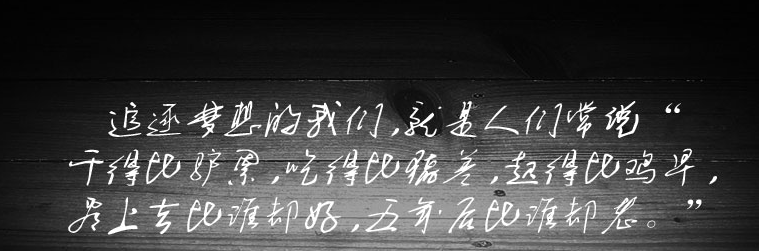 追逐梦想的我们,就是人们常说“
干得比驴累,吃得比猪差,起得比鸡早,
看上去比谁都好,五年后比谁都老。”